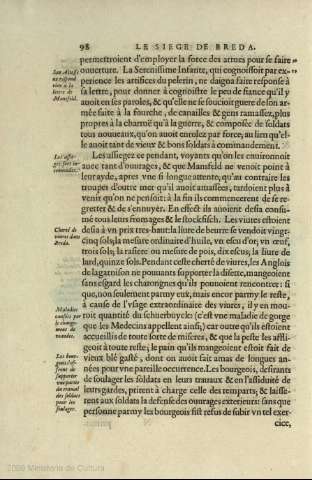 98 LE SIEGE DE BREDA.
permettroient d'employer la force des armes pour se faire
Son Altesse
ne respond
rien à la
lettre de
Mansfeld.
ouverture. La Serenissime Infante, qui cognoissoit par ex-
perience les artifices du pelerin, ne daigna faire response à
sa lettre, pour donner à cognoistre le peu de fiance qu'il y
auoit en ses paroles, & qu'elle ne se soucioit guere de son ar-
mée faite à la fourche, de canailles & gens ramassez, plus
propres à la charruë qu'à la guerre, & composée de soldats
tous nouueaux, qu'on auoit enrolez par force, au lieu qu'el-
le auoit tant de vieux & bons soldats à commandement.
Les assie-
gez sont in-
commodez.
Les assiegez ce pendant, voyants qu'on les environnoit
auec tant d'ouurages, & que Mansfeld ne venoit point à
leur ayde, apres vne si longue attente, qu'au contraire les
trouppes d'outre mer qu'il auoit amassées, tardoient plus à
venir qu'on ne pensoit: à la fin ils commencerent de se re-
gretter & de s'ennuyer. En effect ils auoient desia consu-
mé tous leurs fromages & le stockfisch. Les viures estoient
Cherté de
viures dans
Breda.
desia à vn prix tres-haut: la liure de beurre se vendoit vingt-
cinq sols, la mesure ordinaire d'huile, vn escu d'or; vn œuf,
trois sols; la rasiere ou mesure de pois, dix escus; la liure de
lard, quinze sols. Pendant celle cherté de viures, les Anglois
de la garnison ne pouuants supporter la disette, mangeoient
sans esgard les charongnes qu'ils pouuoient rencontrer: si
que, non seulement parmy eux, mais encor parmy le reste,
Maladies
causées par
le change-
ment de
viandes.
à cause de l'vsage extraordinaire des viures, il y en mou-
roit quantité du schuerbuyck: (c'est vne maladie de gorge
que les Medecins appellent ainsi;) car outre qu'ils estoient
accueillis de toute sorte de miseres, & que la peste les affli-
geoit à toute reste; le pain qu'ils mangeoient estoit fait de
vieux blé gasté, dont on auoit fait amas de longues an-
Les bour-
geois desi-
rent de
supporter
vne partie
du travail
des soldats
pour les
soulager.
nées pour vne pareille occurrence. Les bourgeois, desirants
de soulager les soldats en leurs travaux & en l'assiduité de
leurs gardes, prirent à charge celle des remparts; & laisse-
rent aux soldats la defense des ouurages exterieurs: sans que
personne parmy les bourgeois fist refus de subir vn tel exer-
cice,
2009 Ministerio de Cultura